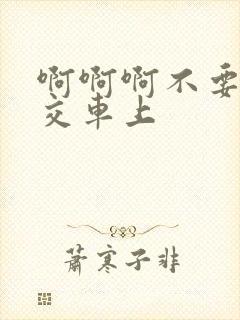 啊啊啊不要
交车上
萧寒子非